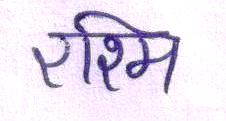 रश्मि